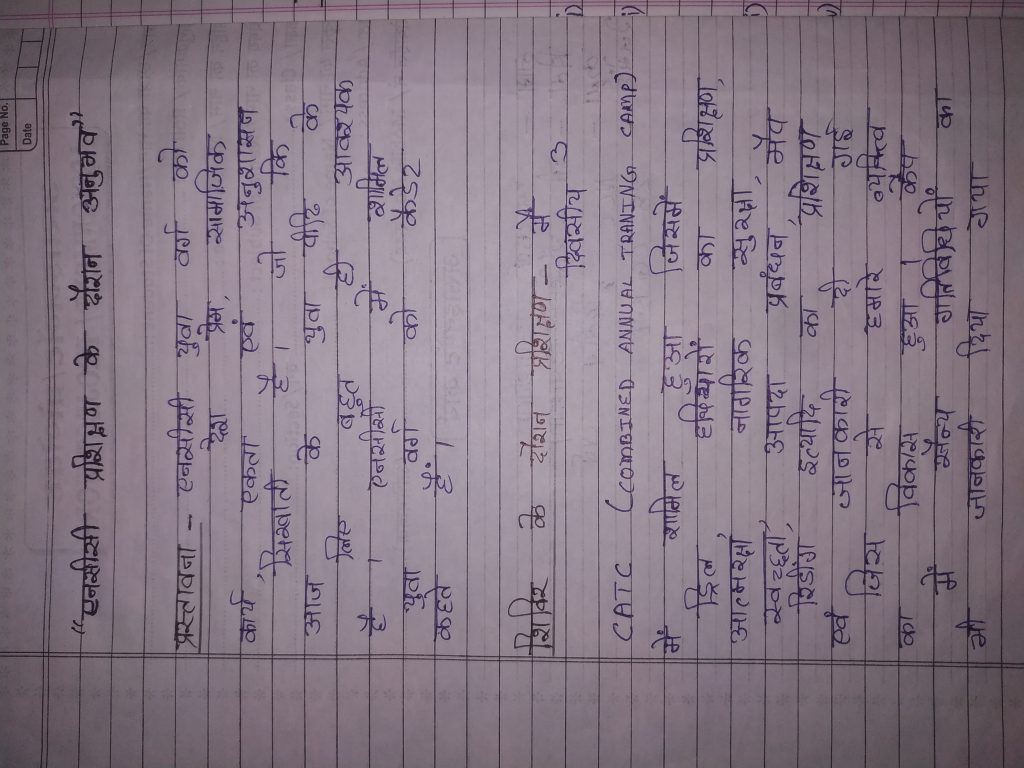 Page No.
Date
"एनसीसी प्रशिक्षण के दौरान अनुभव"
प्रस्तावना - एनसीसी युवा वर्ग को
कार्य, एकता एवं अनुशासन
देश प्रेम, सामाजिक
सिखाती है। जो कि
आज के युवा पीढि के
लिए बहुत ही आवश्यक
है। एनसीसी में शामिल
युवा वर्ग को कैडेट
कहते हैं।
शिविर के दौरान प्रशिक्षण - मै
दिवसीय
CATC (COMBINED ANNUAL TRANING CAMP)
में शामिल हुआ जिसमें
ड्रिल हथियारों का प्रशिक्षण,
आत्मरक्षा नागरिक सुरक्षा,
स्वच्छता, आपदा प्रबंधन, मैप
रिडिंग इत्यादि का प्रशिक्षण
एवं जानकारी दी गई
जिस से हमारे व्यक्तित्व
का विकास हुआ। कैंप
में सैन्य गतिविधियों का
भी जानकारी दिया गया